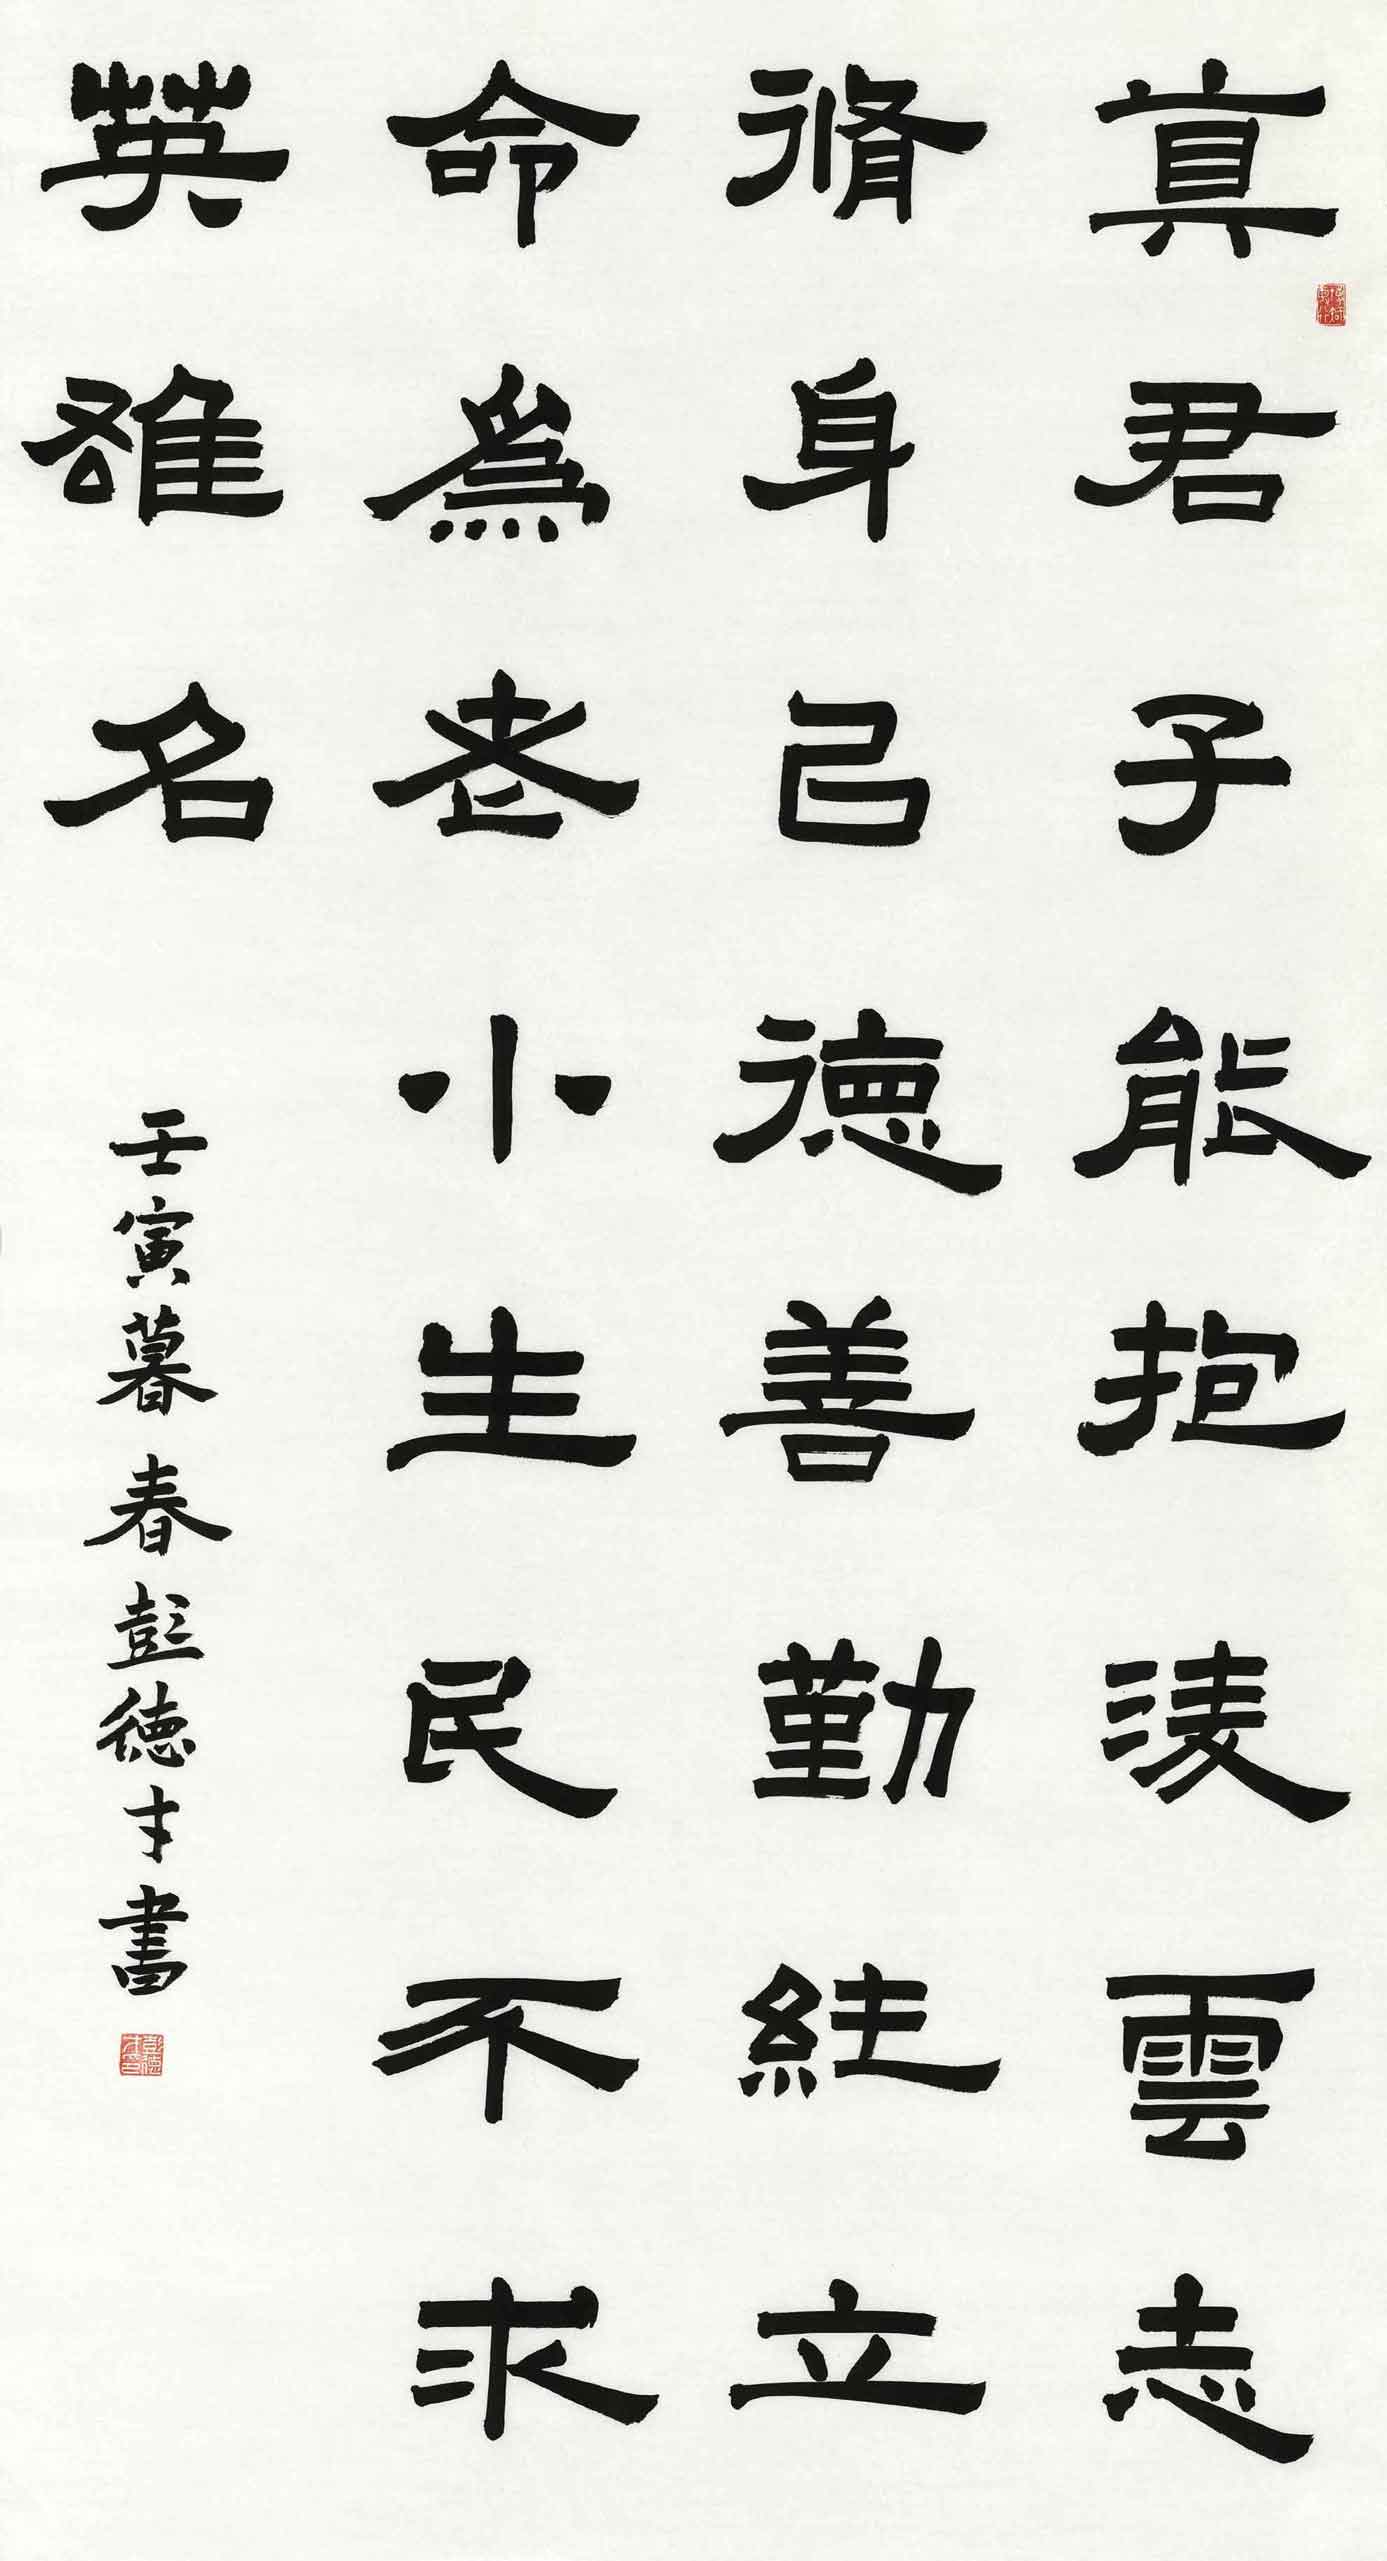 真君子能抱淩雲志
脩身㠯德善勤立
命爲老小生民不求
英雄名
壬寅暮春彭德才書
彭德才印